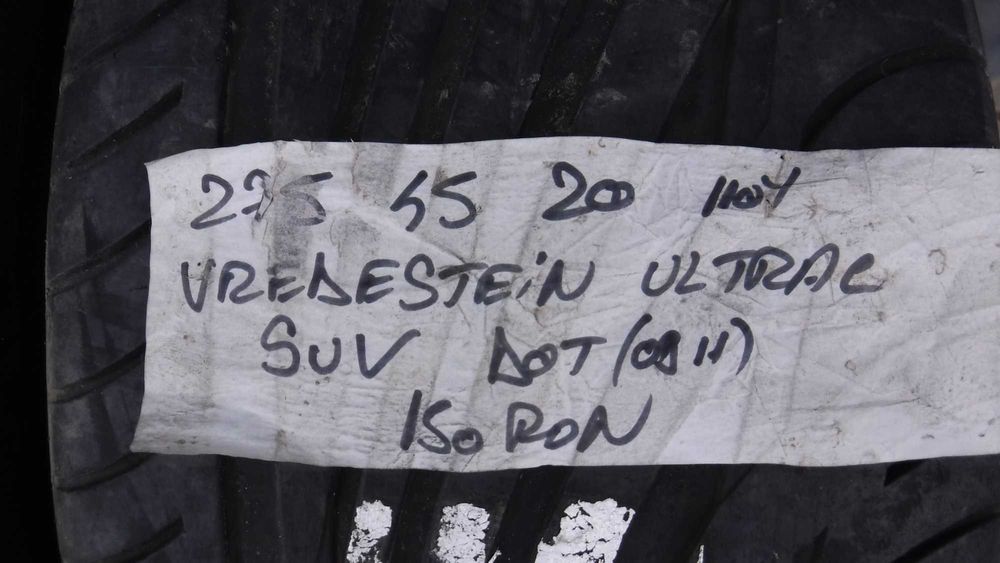 275 45 20 110Y
VREDESTEIN ULTRAC
SUV DOT (0811)
150 RON